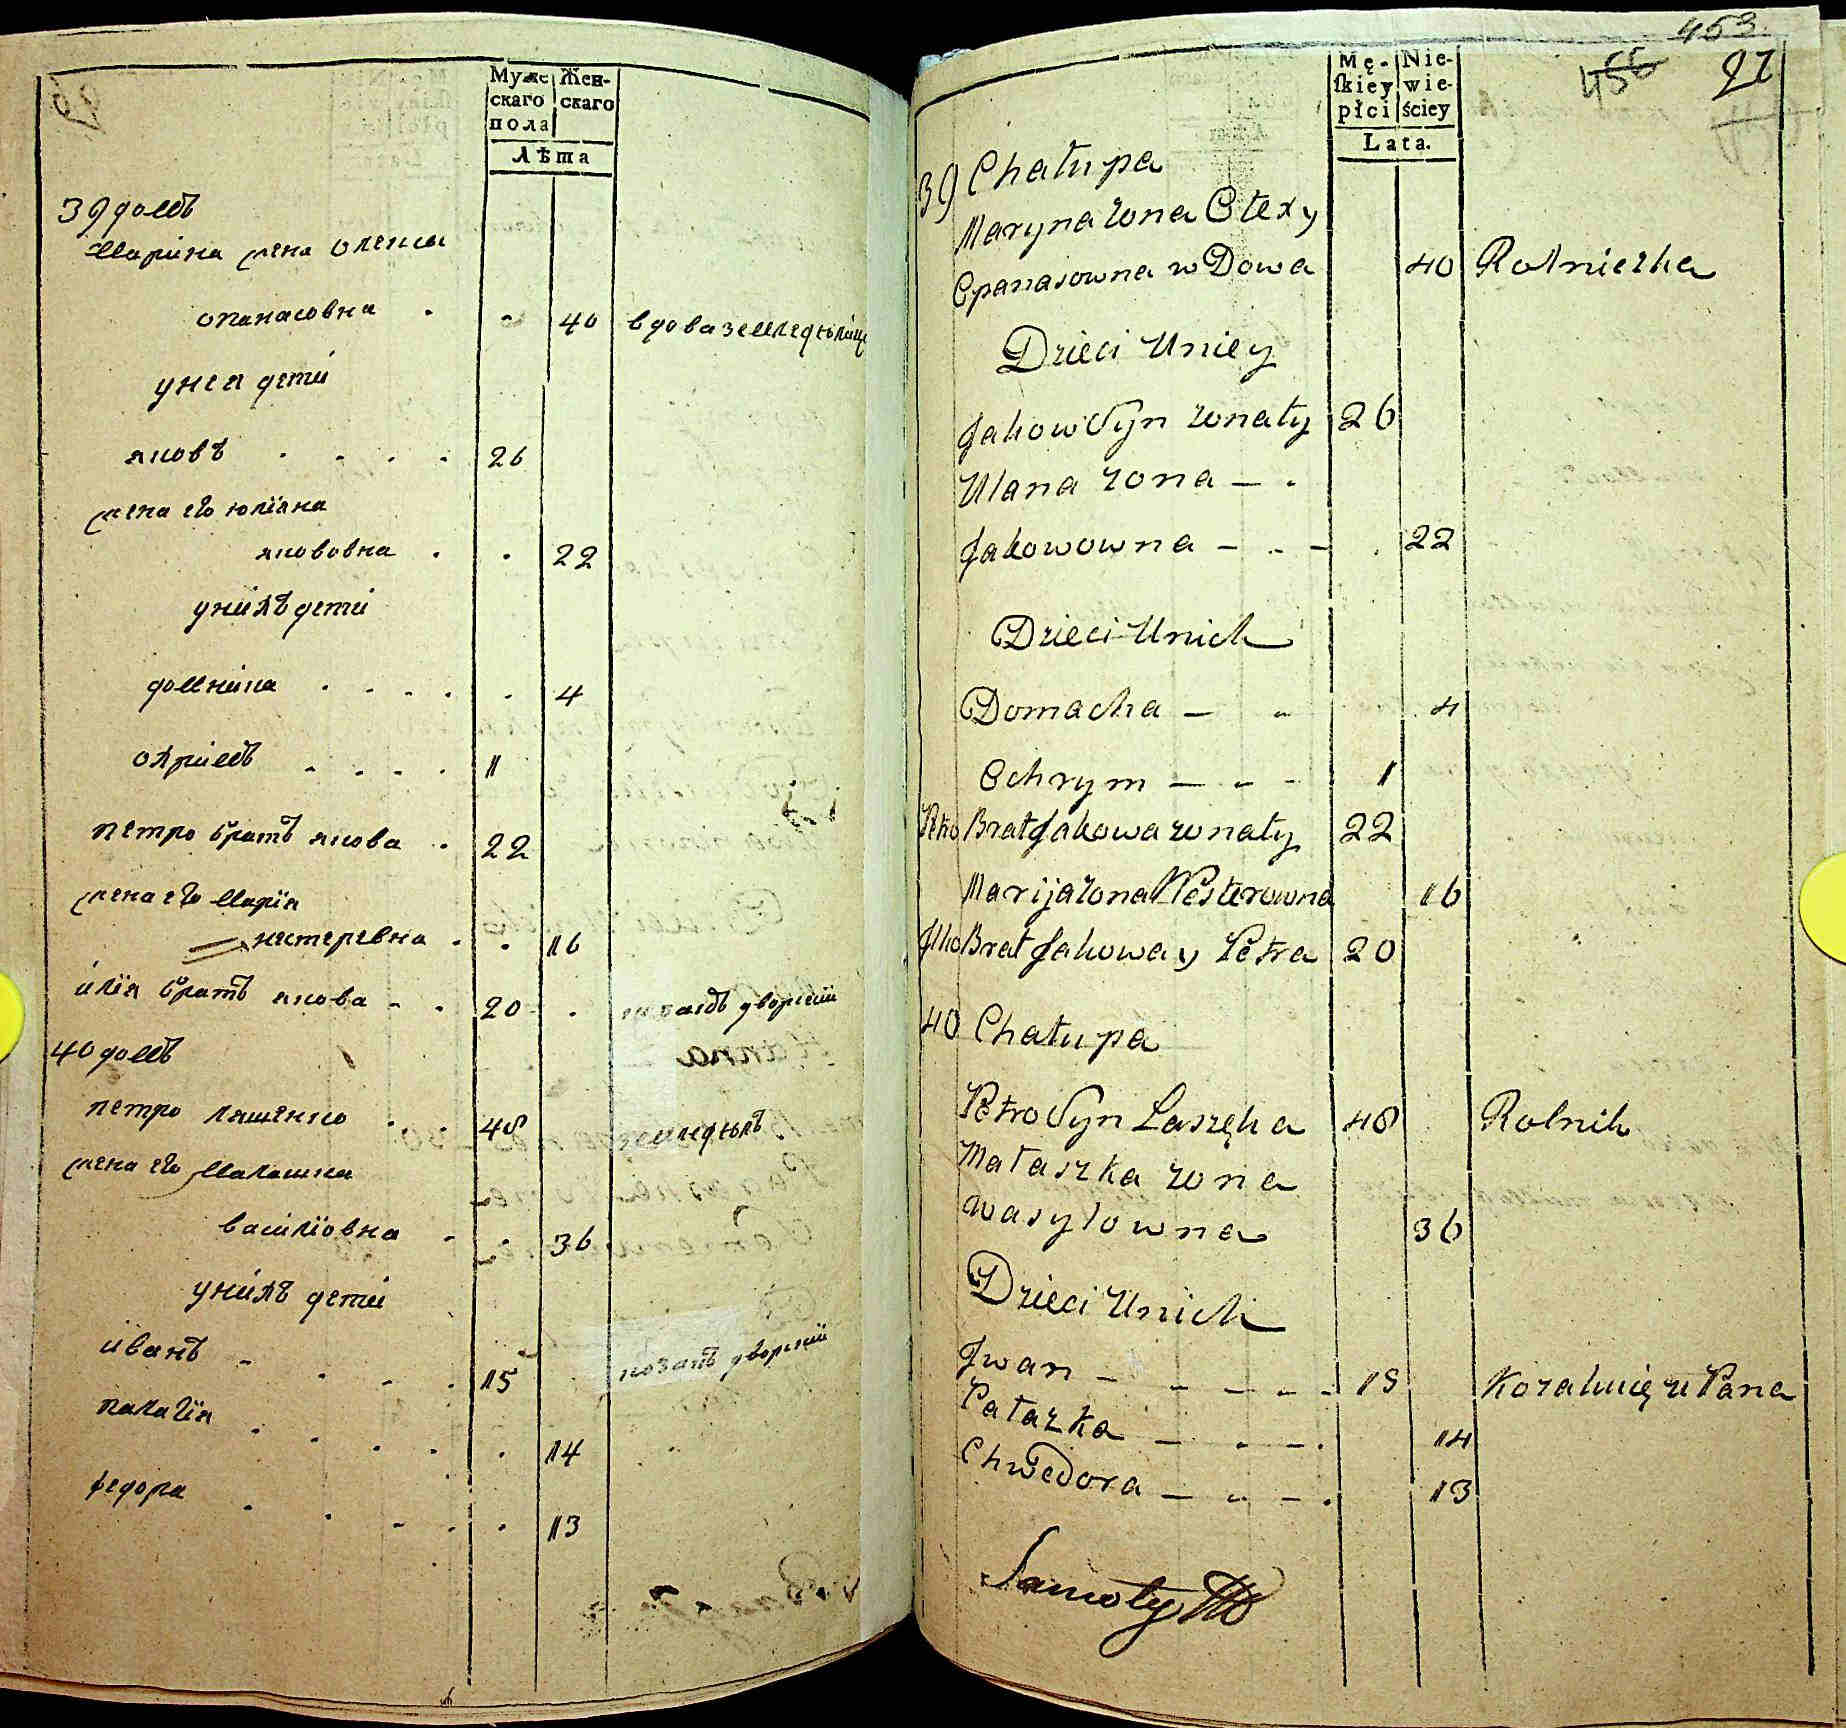 Муже Жен-
скаго скаго
пола
Лѣта
39 домъ
Марина жена Олексы
опанасовна . - 40 вдова земледѣлица
у нея дети
яковъ . . . . 26
жена его юлiяна
якововна . . 22
у нихъ дети
домника . . . . . 4
охримъ . . . . 1
петро братъ якова . 22
жена его Марiя
нестеревна . . 16
илiя братъ якова - . 20 . козакъ дворкiй
40 домъ
петро ляшенко . . 48 земледѣлъ
жена его Малашка
василiовна - . 36
у нихъ дети
иванъ - . - . 15 козакъ дворскiй
палагiя . . . . . 14
федора . . - . . 13
453.
456 27
Mę- Nie-
ſkiey wie-
płci ściey
Lata.
39 Chałupa
Maryna żona Olexy
Opanasowna wDowa 40 Rolniczka
Dzieci Uniey
Jakow Syn żonaty 26
Ulana żona - .
Jakowowna - . - . 22
Dzieci Unich
Domacha - - 4
Ochrym - - - 1
Petro Brat Jakowa żonaty 22
Marija żona Nesterowna 16
Ilko Brat Jakowa y Petra 20
40 Chałupa
Petro Syn Laszęka 48 Rolnik
Małaszka żona
Wasylowna 36
Dzieci Unich
Jwan - - - - - 15 Kozakuię u Pana
Pałazka - . - . 14
Chwedora - - - . 13